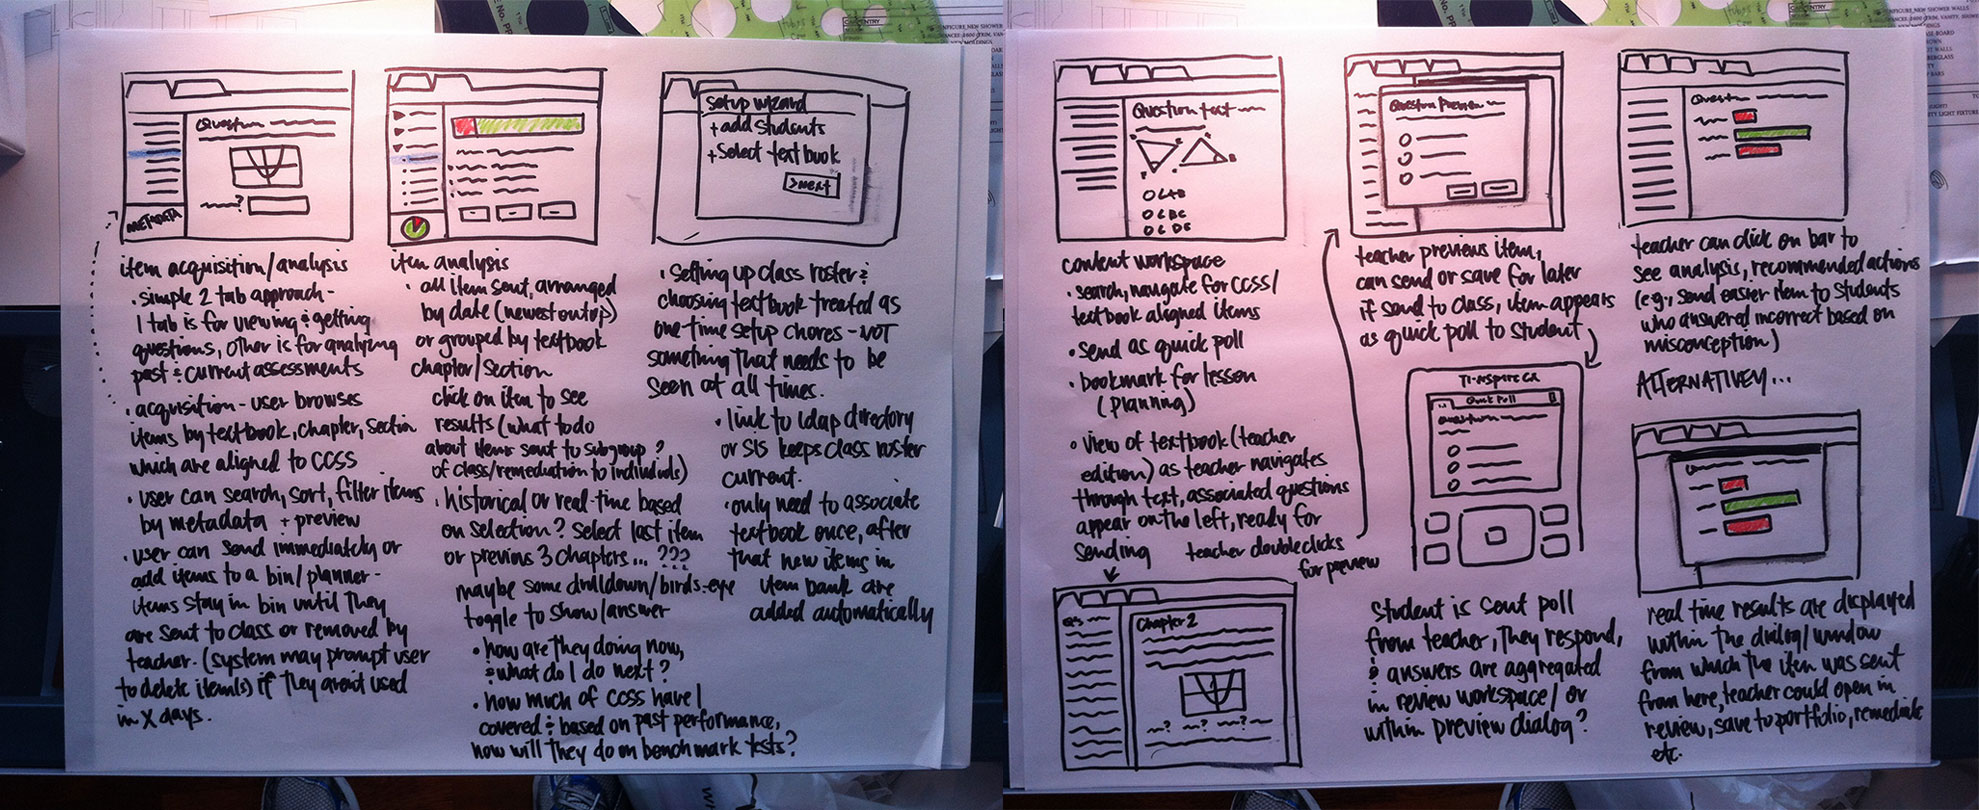 Question
?
METADATA
item acquisition/analysis
• simple 2 tab approach -
1 tab is for viewing & getting
questions, other is for analyzing
past & current assessments
• acquisition - user browses
items by textbook, chapter, section
which are aligned to CCSS
• user can search, sort, filter items
by metadata + preview
• user can send immediately or
add items to a bin/planner -
items stay in bin until they
are sent to class or removed by
teacher. (system may prompt user
to delete item(s) if they aren't used
in X days.
item analysis
• all item sent, arranged
by date (newest on top)
or grouped by textbook
chapter/section
click on item to see
results (what to do
about items sent to subgroup ?
of class/remediation to individuls)
• historical or real-time based
on selection? Select last item
or previous 3 chapters... ???
maybe some drilldown/birds-eye
toggle to show/answer
• how are they doing now,
& what do I do next?
• how much of CCSS have I
covered & based on past performance,
how will they do on benchmark tests?
Setup wizard
+ add students
+ Select textbook
> next
• Setting up class roster &
choosing textbook treated as
one-time setup chores - NOT
something that needs to be
seen at all times.
• link to ldap directory
or SIS keeps class roster
current.
• only need to associate
textbook once, after
that new items in
item bank are
added automatically
Question text
content workspace
• search, navigate for CCSS/
textbook aligned items
• send as quick poll
• bookmark for lesson
(planning)
• view of textbook (teacher
edition) as teacher navigates
through text, associated questions
appear on the left, ready for
sending
teacher double clicks
for preview
Chapter 2
? ? ?
Question Preview
teacher previews item,
can send or save for later
if send to class, item appears
as quick poll to student
TI-nspire CX
Quick Poll
Question
student is sent poll
from teacher, they respond,
& answers are aggregated
in review workspace/or
within preview dialog?
Question
teacher can click on bar to
see analysis, recommended actions
(e.g., send easier item to students
who answered incorrect based on
misconception)
ALTERNATIVEY...
real time results are displayed
within the dialog/window
from which the item was sent
from here, teacher could open in
review, save to portfolio, remediate
etc.